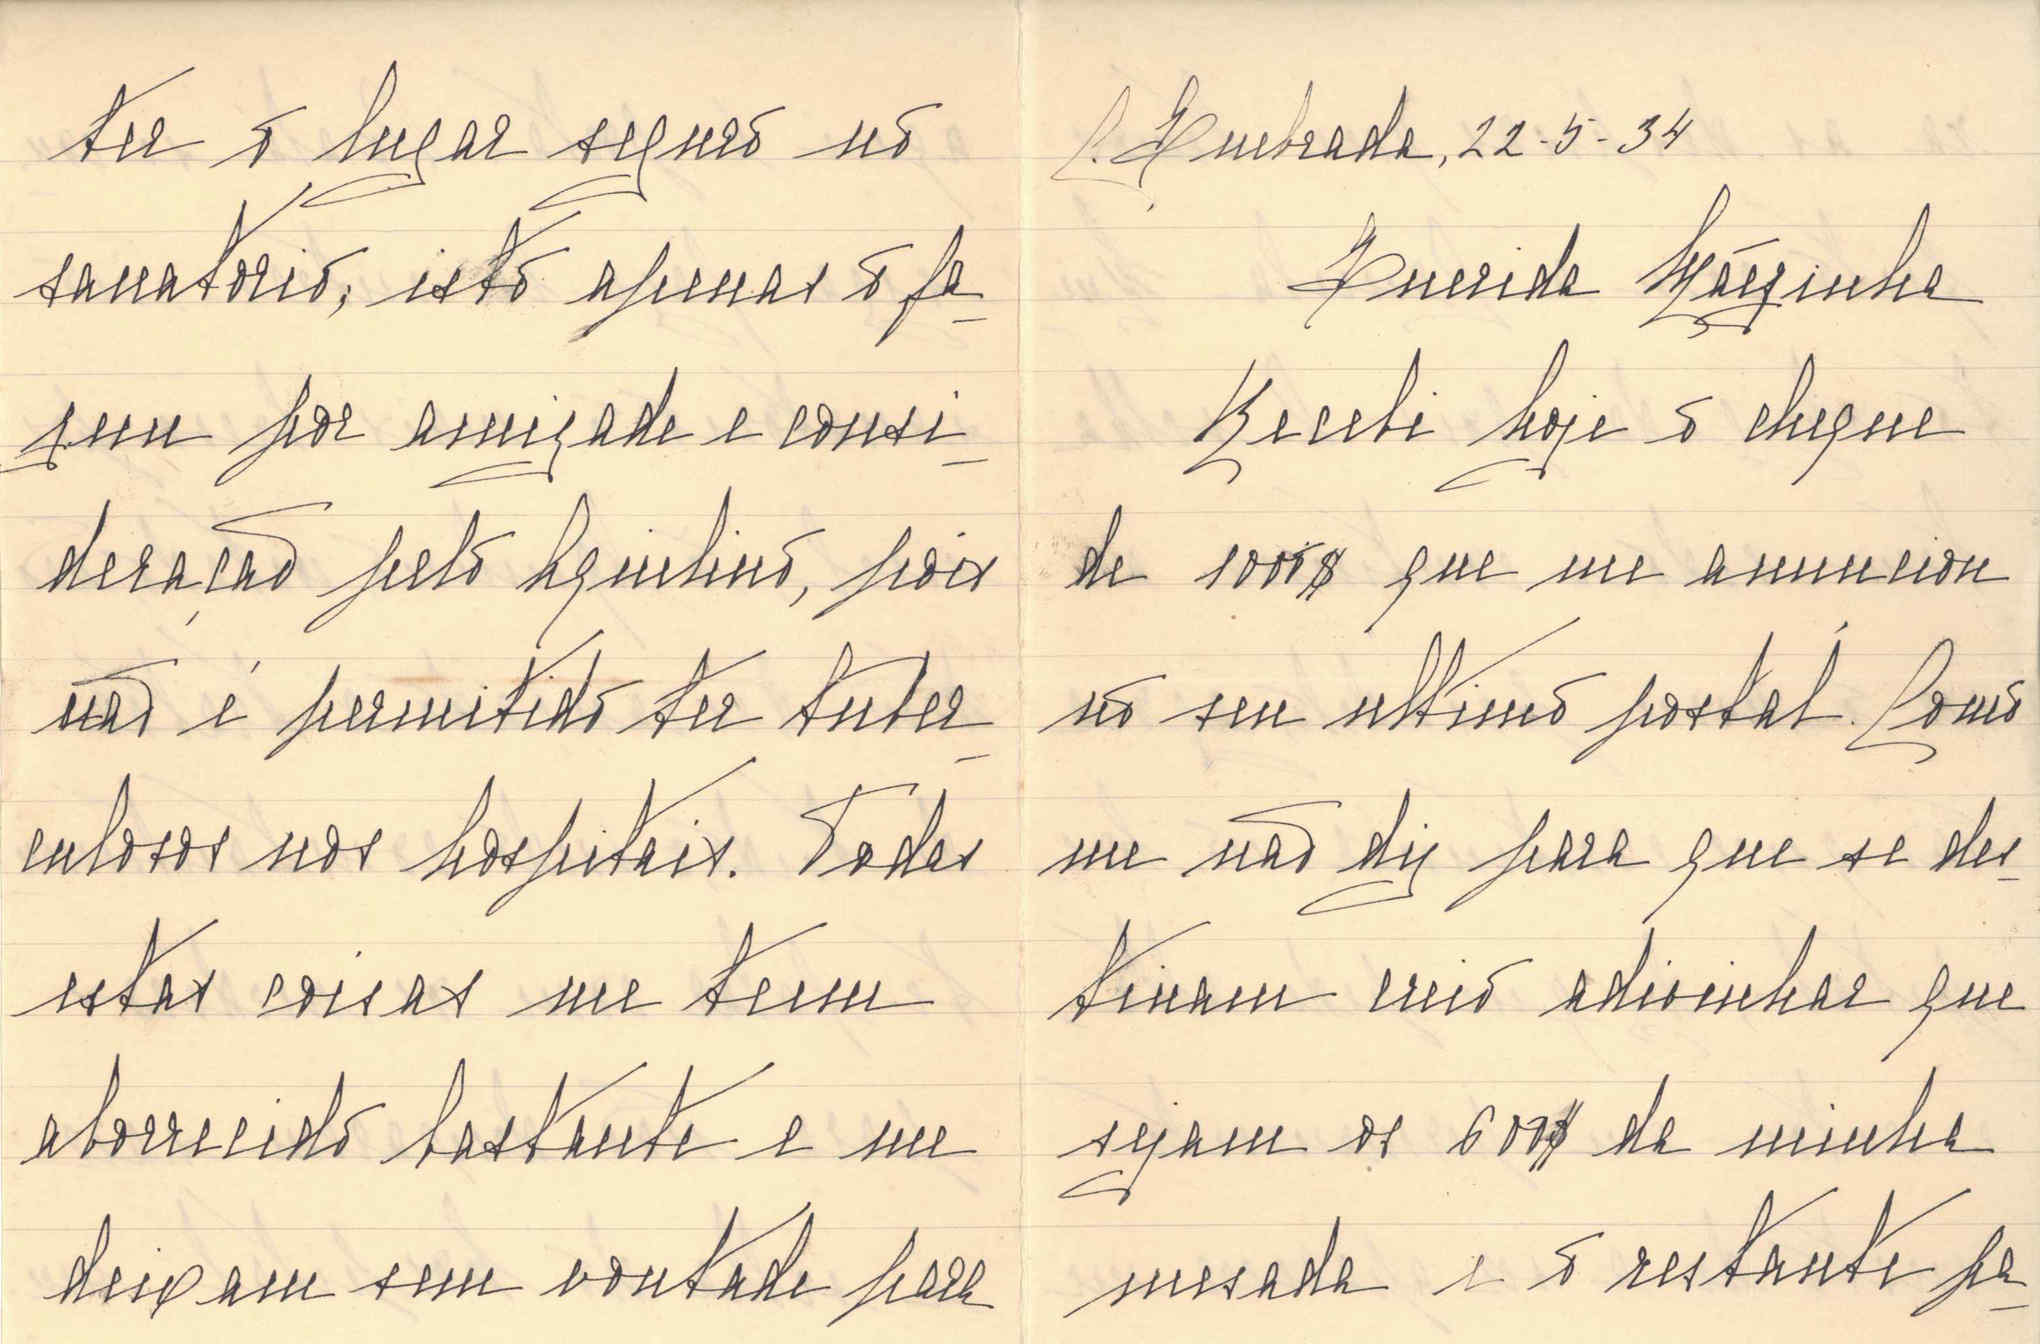 C. Quebrada, 22-5-34
Querida Mãezinha
Recebi hoje o cheque
de 1000$ que me anunciou
no seu ultimo postal. Como
me não diz para que se des-
tinam creio adivinhar que
sejam os 600$ da minha
mesada e o restante pa-
ter o lugar seguro no
sanatorio; isto apenas o fa-
zem por amizade e consi-
deração pelo Aquilino, pois
não é permitido ter tuber-
culosos nos hospitais. Todas
estas coisas me teem
aborrecido bastante e me
deixam sem vontade para